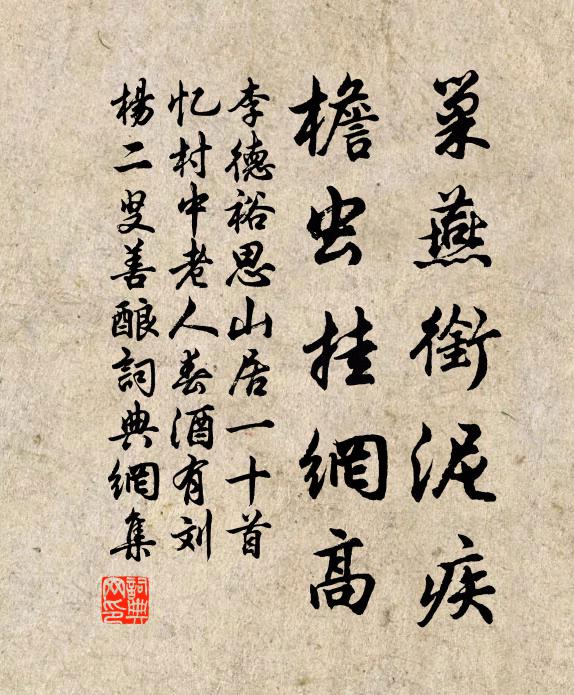 巢燕銜泥疾
檐虫挂網高
李德裕思山居一十首
忆村中老人春酒有刘
楊二叟善酿詞典網集
詞典
网印